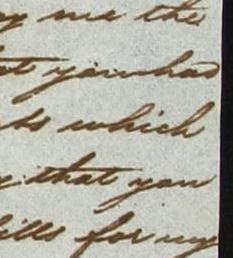 me the
you had
which
that you
for my